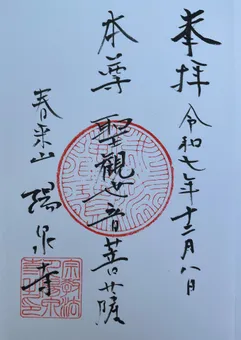 奉拝
令和七年十二月八日
本尊 聖観世音菩薩
春来山
陽泉寺